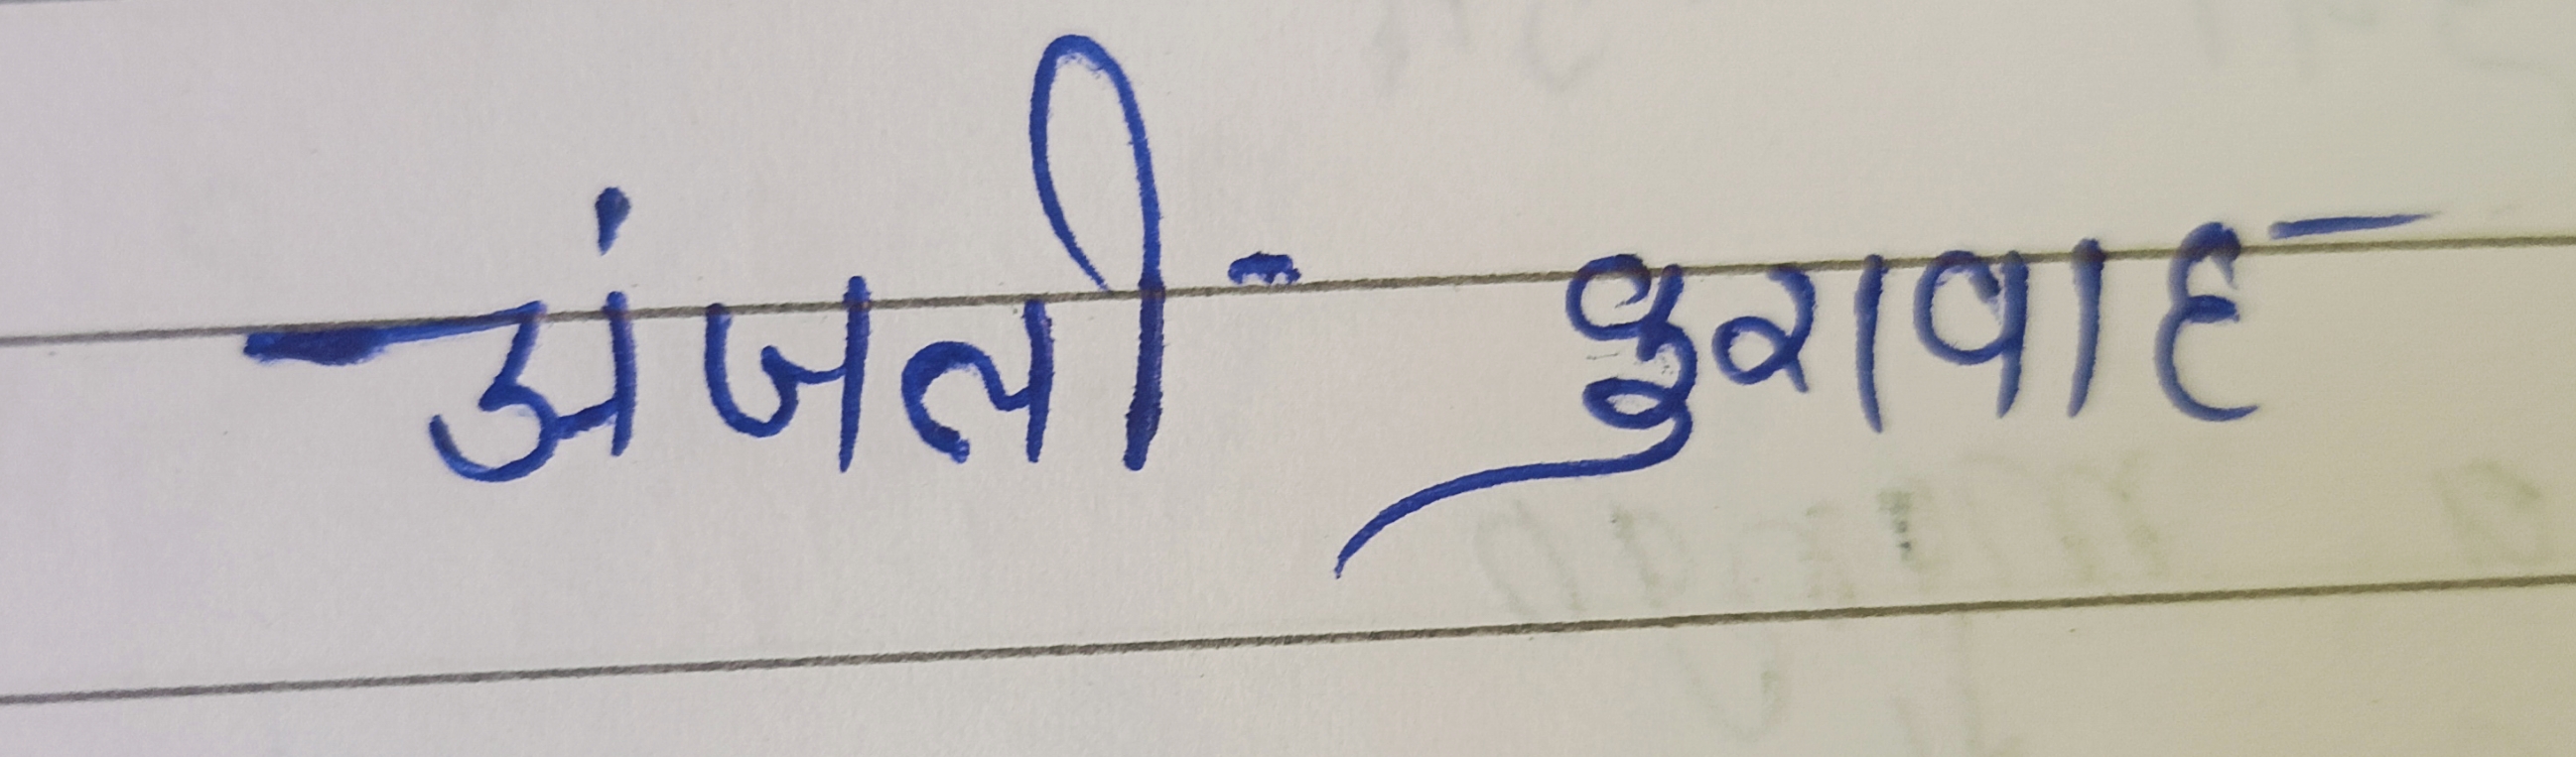 अंजली - कुशवाह